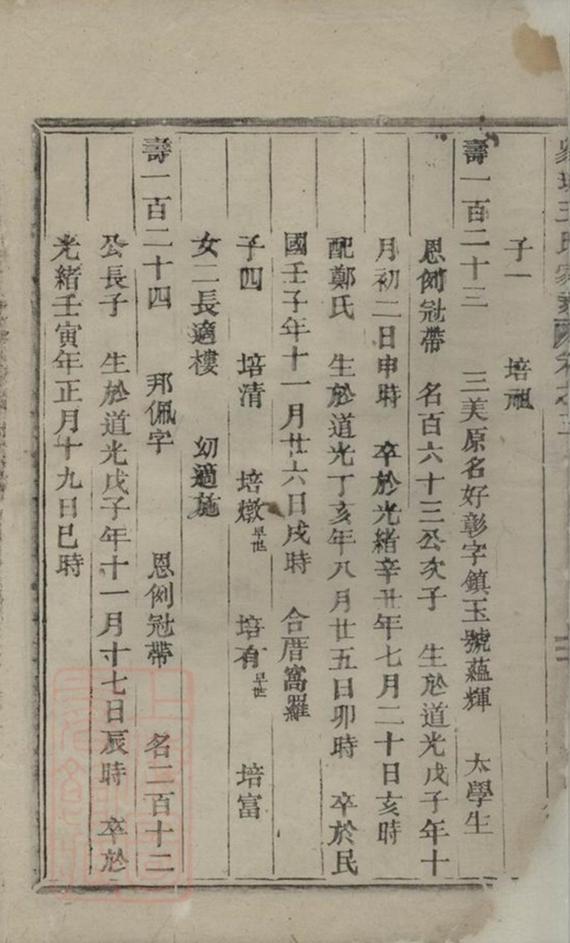 王氏家
子一　培
壽一百二十三　三美原名好彰字鎮玉號蘊輝　太學生
恩例冠帶　名百六十三公次子　生於道光戊子年十
月初二日申時　卒於光緒辛丑年七月二十日亥時
配鄭氏　生於道光丁亥年八月廿五日卯時　卒於民
國壬子年十一月廿六日戌時　合厝窩羅
子四　培清　培燉早世　培有早世　培富
女二長適樓　幼適施
壽一百二十四　邦佩字　恩例冠帶　名二百十二
公長子　生於道光戊子年十一月十七日辰時　卒於
光緒壬寅年正月十九日巳時